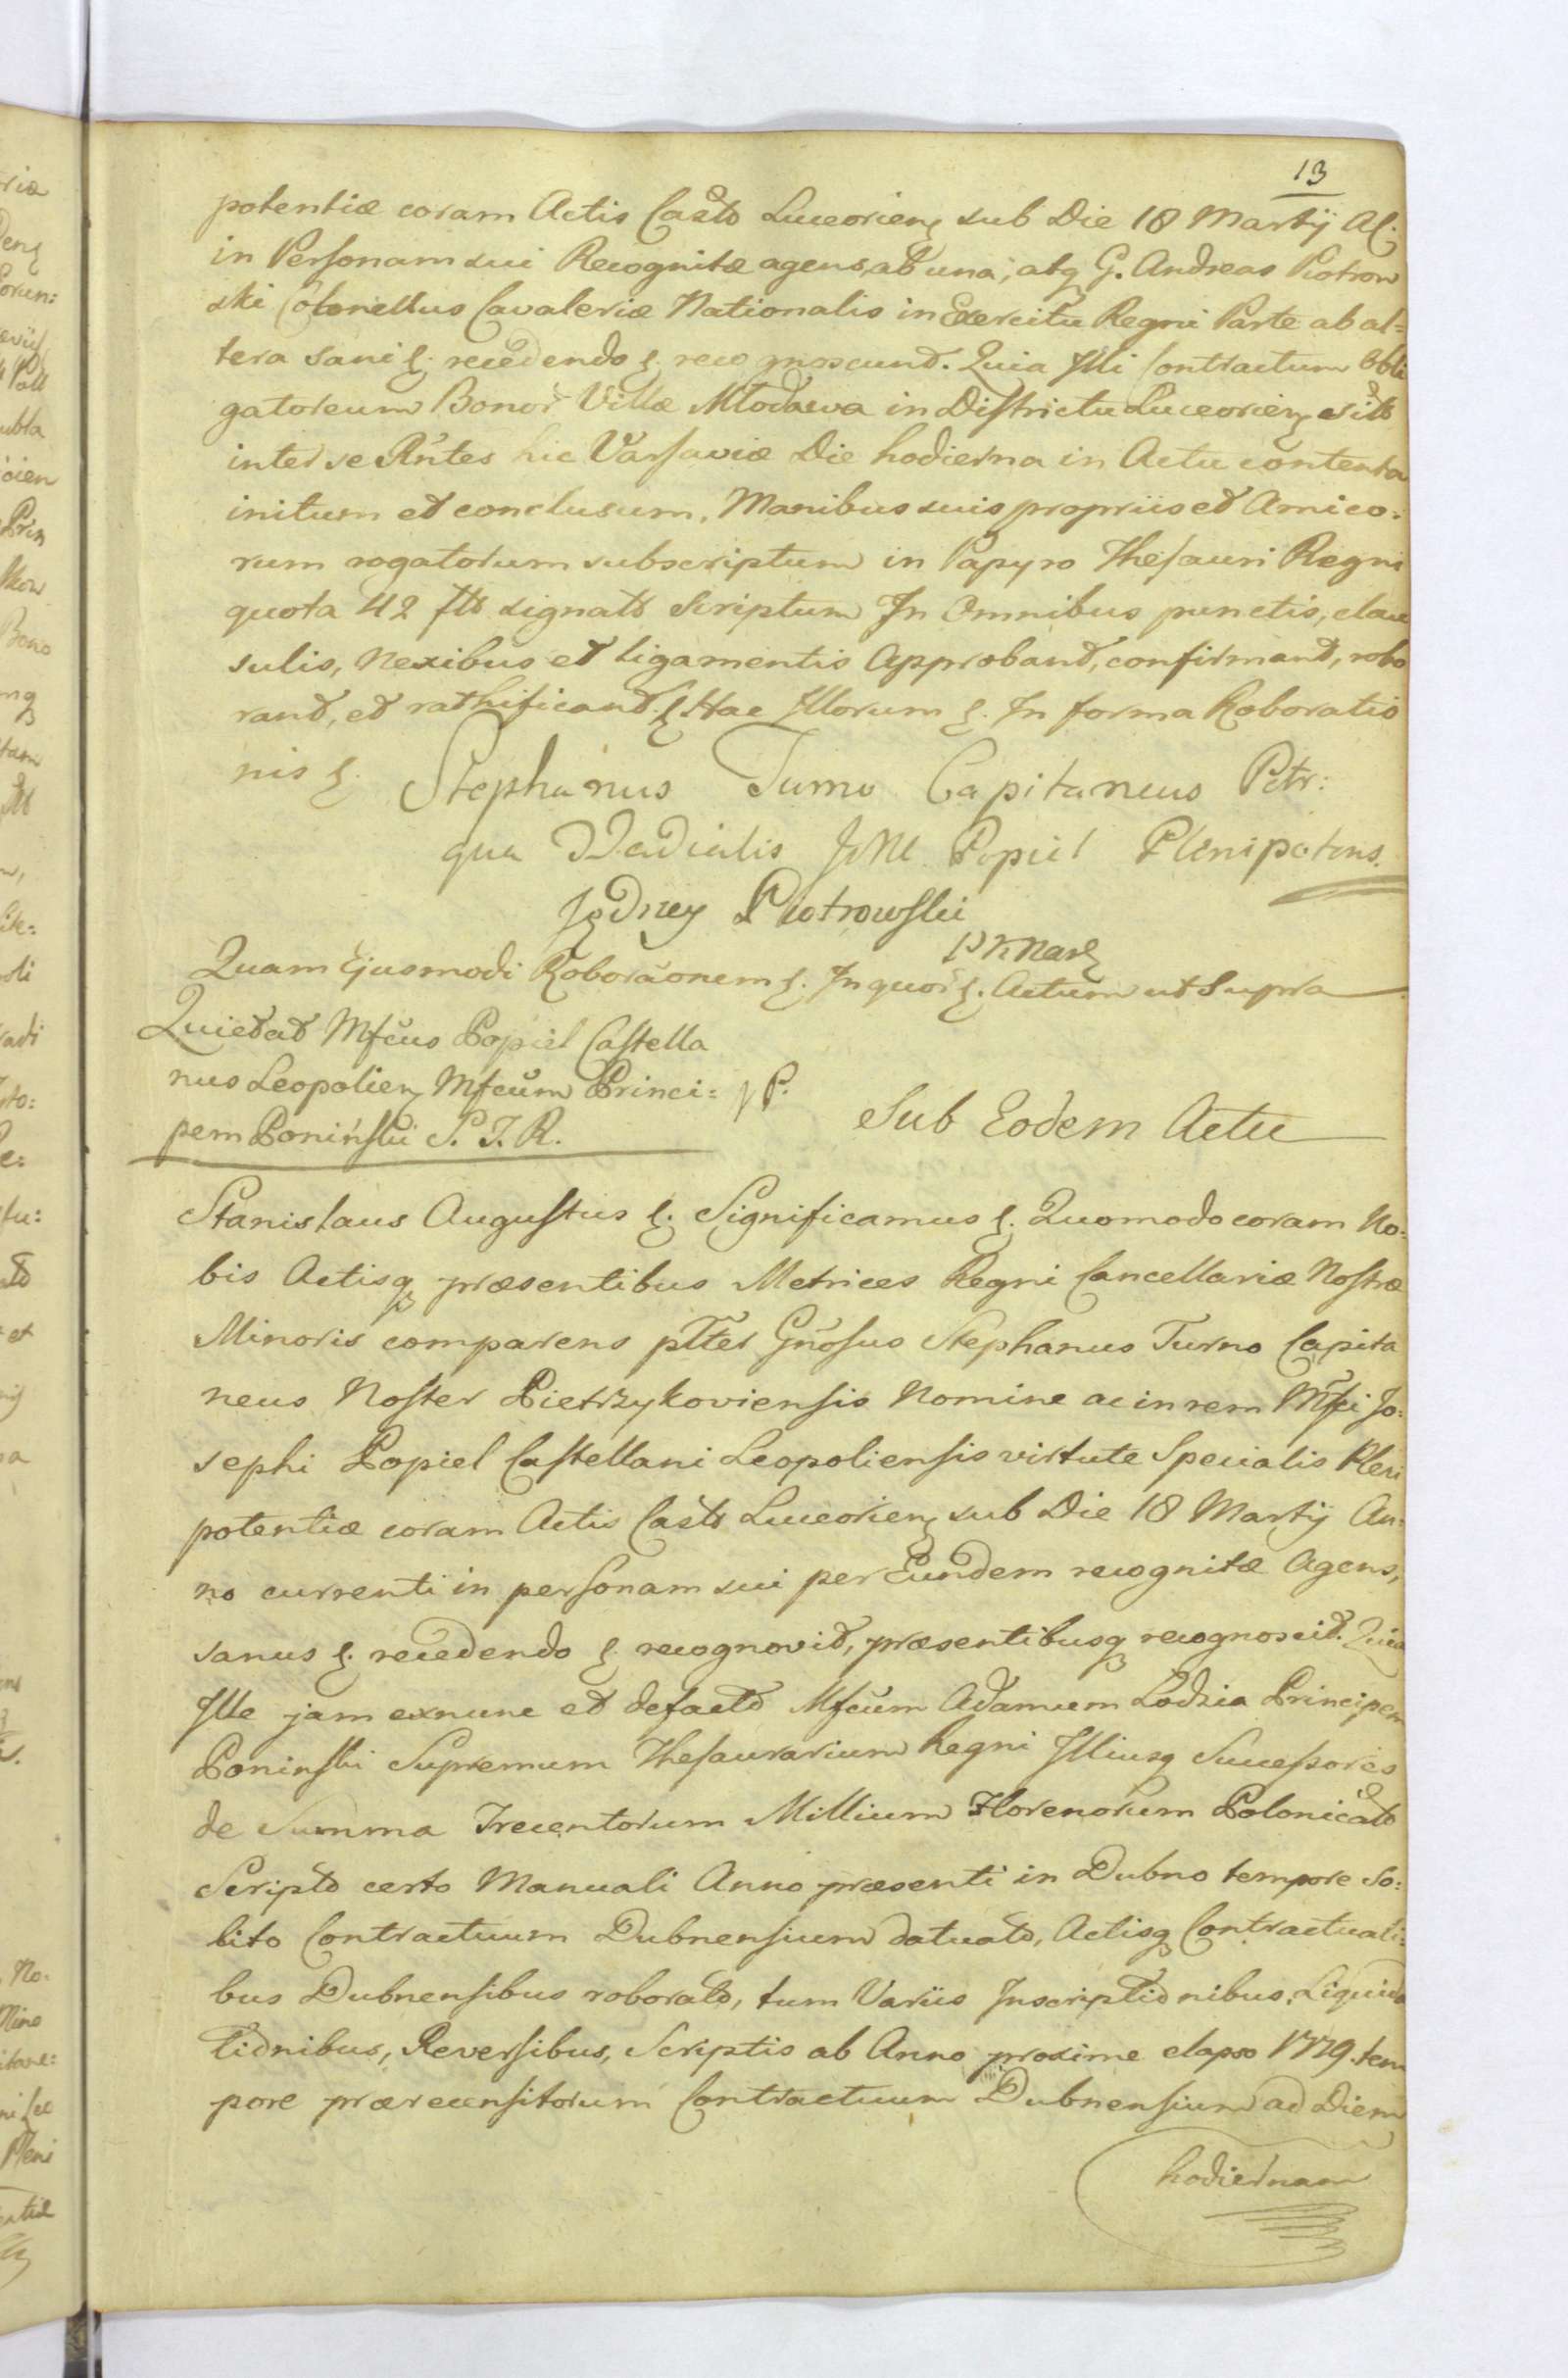 13
potentiæ coram Actis Castb Luceorien̄ sub Die 18 Martij AC.
in Personam sui Recognitæ agens, ab una; atq̨ G. Andreas Piotrow
ski Colonellus Cavaleriæ Nationalis in Exercitu Regni Parte ab al=
tera sani &. recedendo &. recognoscunt. Quia Illi Contractum Obli
gatorium Bonor̃ Villæ Młodawa in Districtu Luceorien̄ sitb
inter se Rñtes hic Varsaviæ Die hodierna in Actu contenta
initum et conclusum, Manibus suis propriis et Amico=
rum rogatorum subscriptum in Papyro Thesauri Regni
quota 42 fltb signatb Scriptum In Omnibus punctis, clau
sulis, Nexibus et Ligamentis Approbant, confirmant, robo
rant, et rathificant. & Hac Illorum &. In forma Roboratio
nis &.
Stephanus Turno Capitaneus Petr:
qua JP. Popiel Plenipotens.
Jędrzej Piotrowski
P K Nar
Quam Ejusmodi Roborãonem &. In quor̃ &. Actum ut Supra
Quietat Mfcus Popiel Castella
nus Leopolien̄ Mfcum Princi=
pem Poniński S. T. R.
JP.
Sub Eodem Actu
Stanislaus Augustus &. Significamus &. Quomodo coram No:
bis Actisq̨ præsentibus Metrices Regni Cancellariæ Nostræ
Minoris comparens plter Gñosus Stephanus Turno Capita
neus Noster Pietrzykoviensis Nomine ac in rem Mfci Jo:
sephi Popiel Castellani Leopoliensis virtute Specialis Pleni
potentiæ coram Actis Castb Luceorien̄ sub Die 18 Martij An=
no currenti in personam sui per Eundem recognitæ Agens,
sanus &. recedendo &. recognovit, præsentibusq̨ recognoscit. Quia
Ille jam exnunc et defacto Mfcum Adamum Łodzia Principem
Poniński Supremum Thesaurarium Regni Illiusq̨ Successores
de Summa Trecentorum Millium Florenorum Polonicalb
Scripto certo Manuali Anno præsenti in Dubno tempore So:
lito Contractuum Dubnensium datuatb, Actisq̨ Contractuali=
bus Dubnensibus roboratb, tum Variis Inscriptionibus, Liquida
tionibus, Reversibus, Scriptis ab Anno proxime elapso 1779. tem
pore præreccensitorum Contractuum Dubnensium ad Diem
hodiernam